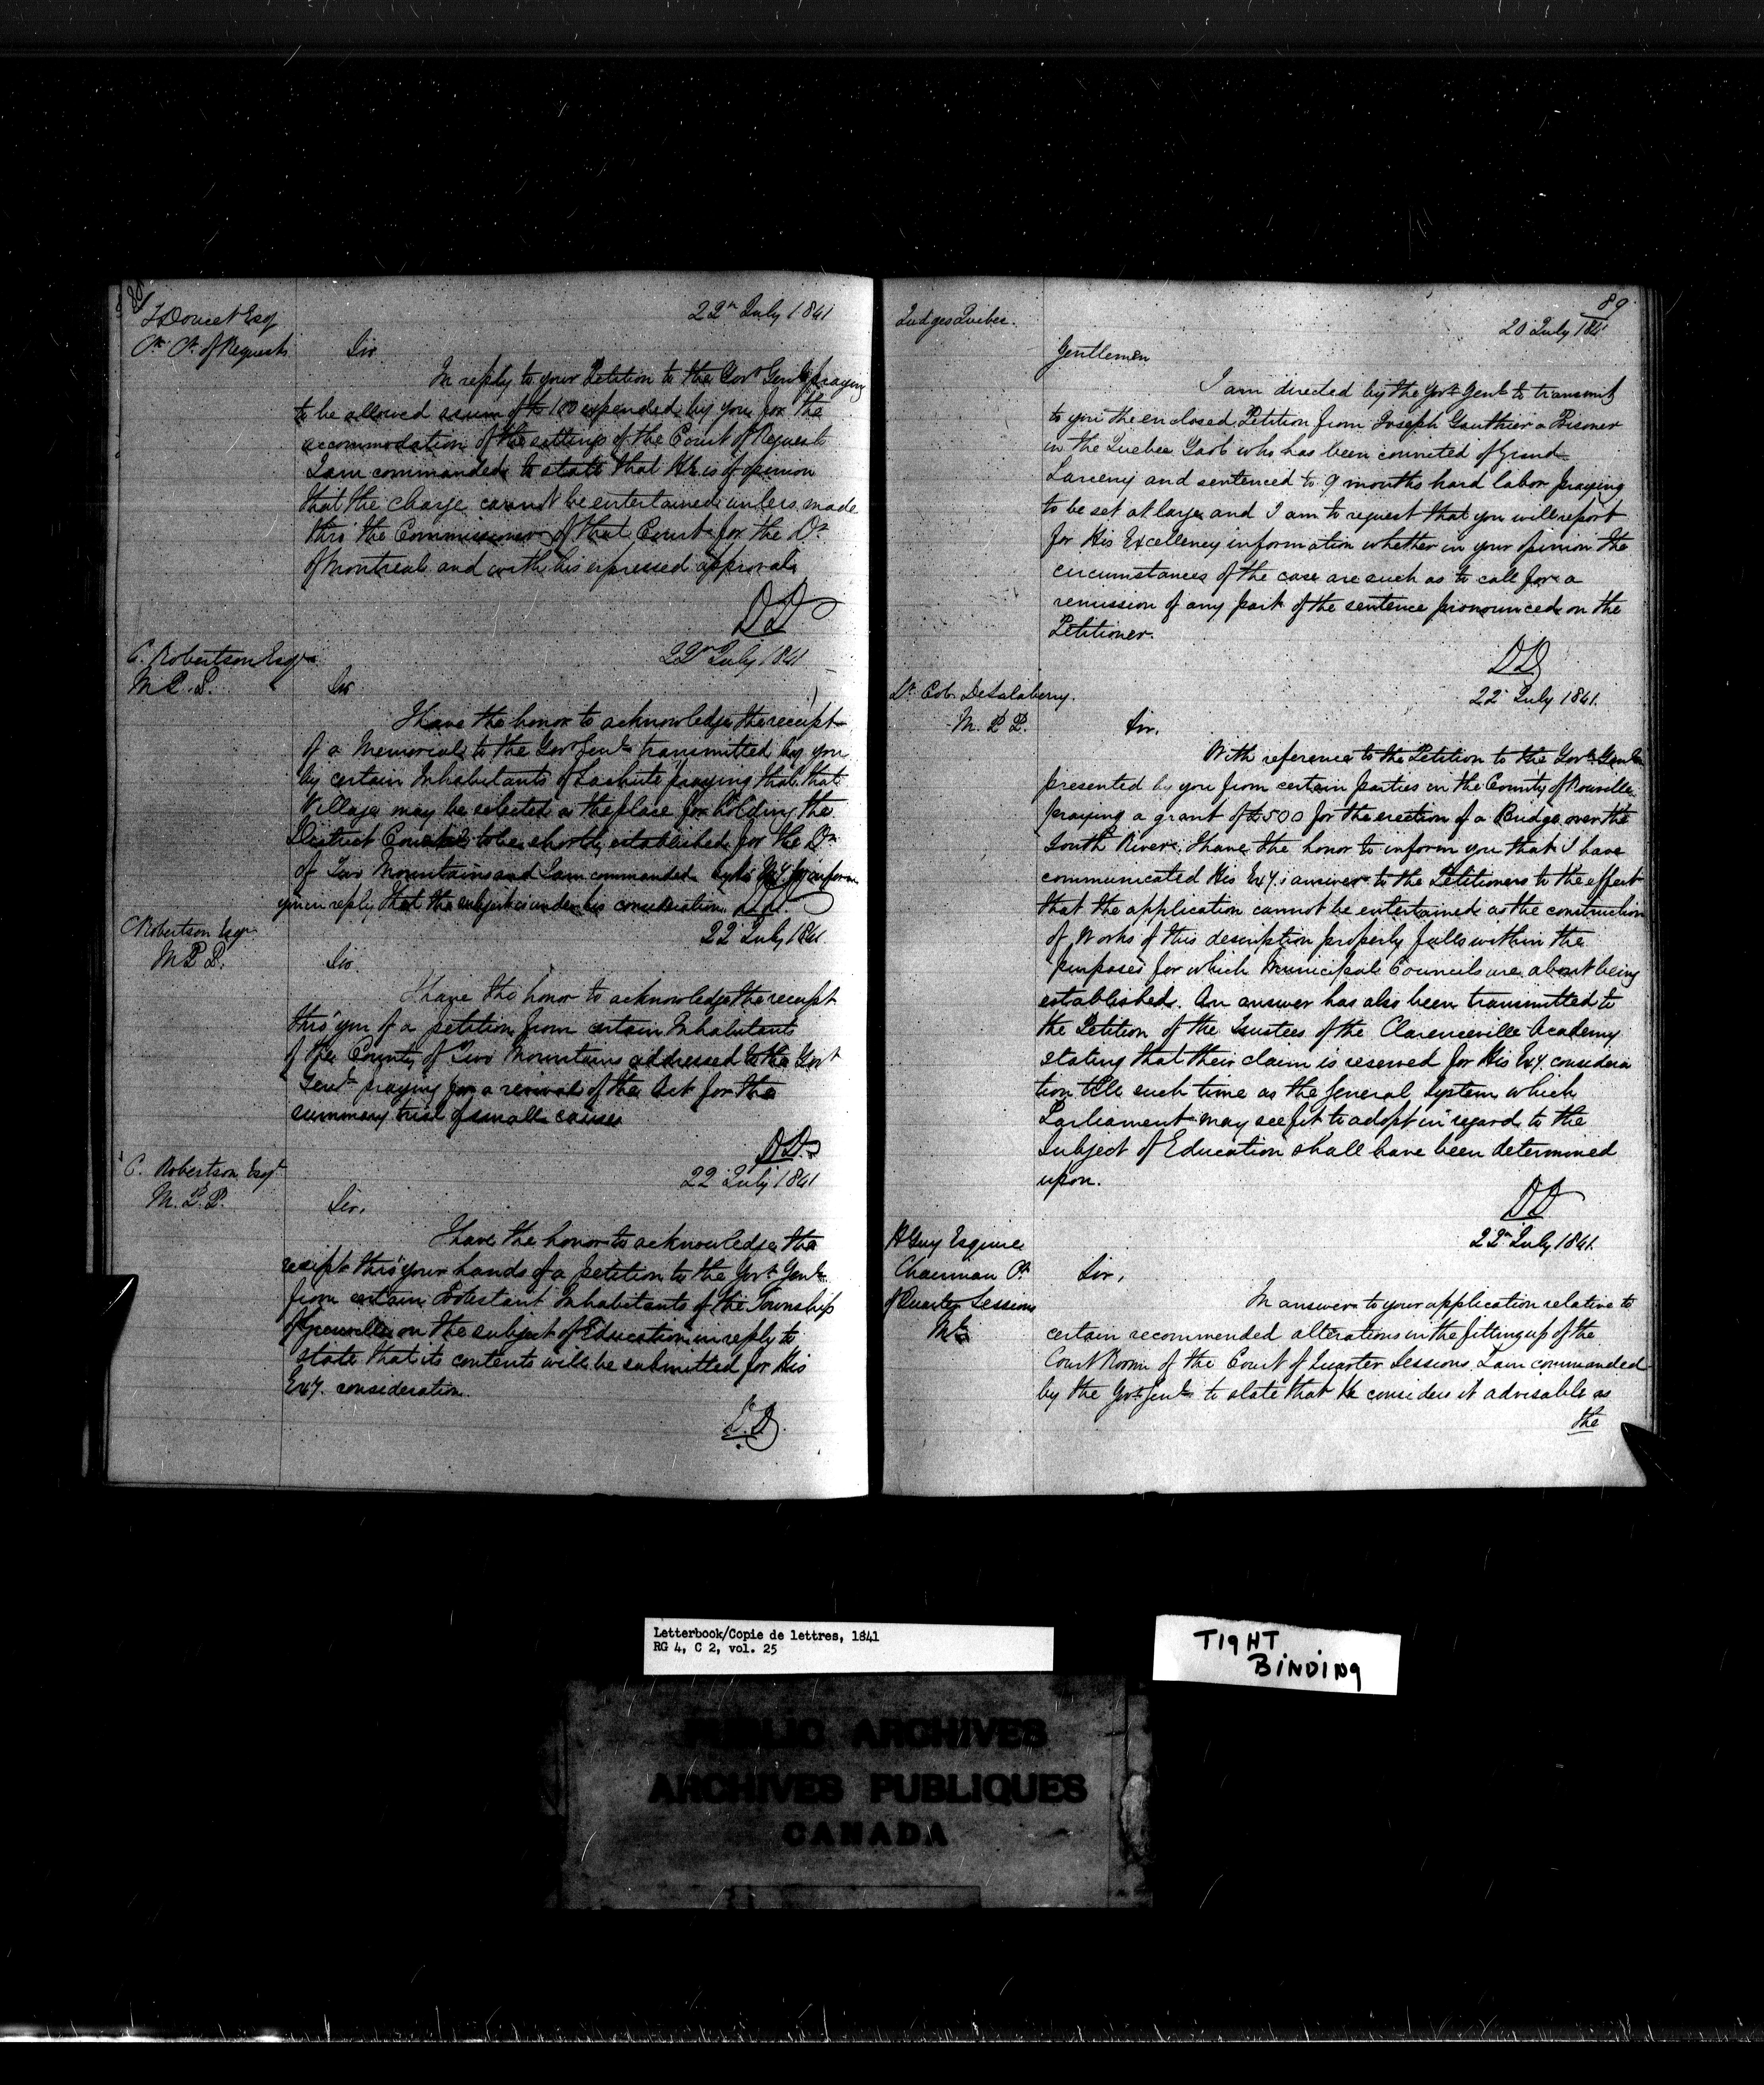 88
T Doucet Esq
Ck Ct of Requests
22d July 1841
Sir
In reply to your Petition to the Govr Genl praying
to be allowed a sum of £100 expended by you for the
accommodation of the sitting of the Court of Requests
I am commanded to state that He is of opinion
that the charge cannot be entertained unless made
thro the Commissioner of that Court for the Dt
of Montreal and with his expressed approval
DD
C. Robertson Esqr
M.P.P.
22d July 1841
Sir
I have the honor to acknowledge the receipt
of a Memorial to the Govr Genl transmitted by you
by certain Inhabitants of Lachute praying that that
Village may be selected as the place for holding the
District Council to be shortly established for the Dt
of Two Mountains and I am commanded by His Exy. to inform
you in reply that the subject is under his consideration. DD.
C Robertson Esqr
M.P.P.
22 July 1841.
Sir.
I have the honor to acknowledge the receipt
thro' you of a petition from certain Inhabitants
of the County of Two Mountains addressed to the Govr
Genl praying for a revival of the Act for the
summary trial of small causes
DD.
C. Robertson Esqr
M.P.P.
22 July 1841
Sir,
I have the honor to acknowledge the
receipt thro' your hands of a petition to the Govr Genl
from certain Protestant Inhabitants of the Township
of Grenville on the subject of Education in reply to
state that its contents will be submitted for His
Exy. consideration.
D.D.
89
Judges Quebec.
20 July 1841
Gentlemen
I am directed by the Govr Genl to transmit
to you the enclosed Petition from Joseph Gauthier a Prisoner
in the Quebec Gaol who has been convicted of Grand
Larceny and sentenced to 9 months hard labor praying
to be set at large and I am to request that you will report
for His Excellency information whether in your opinion the
circumstances of the case are such as to call for a
remission of any part of the sentence pronounced on the
Petitioner.
DD
Lt Col. DeSalaberry.
M.P.P.
22 July 1841.
Sir.
With reference to the Petition to the Govr Genl
presented by you from certain parties in the County of Rouville
praying a grant of £500 for the erection of a Bridge over the
South River. I have the honor to inform you that I have
communicated His Exy.s answer to the Petitioners to the effect
that the application cannot be entertained as the construction
of Works of this description properly falls within the
purposes for which Municipal Councils are about being
established. An answer has also been transmitted to
the Petition of the Trustees of the Clarenceville Academy
stating that their claim is reserved for His Exy. considera
tion till such time as the General System which
Parliament may see fit to adopt in regard to the
Subject of Education shall have been determined
upon.
DD
H Guy Esquire
Chairman Ct
of Quarter Sessions
Ml
22d July 1841.
Sir,
In answer to your application relative to
certain recommended alterations in the fitting up of the
Court Room of the Court of Quarter Sessions, I am commanded
by the Govr Genl to state that He considers it advisable as
the
Letterbook/Copie de lettres, 1841
RG 4, C 2, vol. 25
TIGHT
BINDING
PUBLIC ARCHIVES
ARCHIVES PUBLIQUES
CANADA